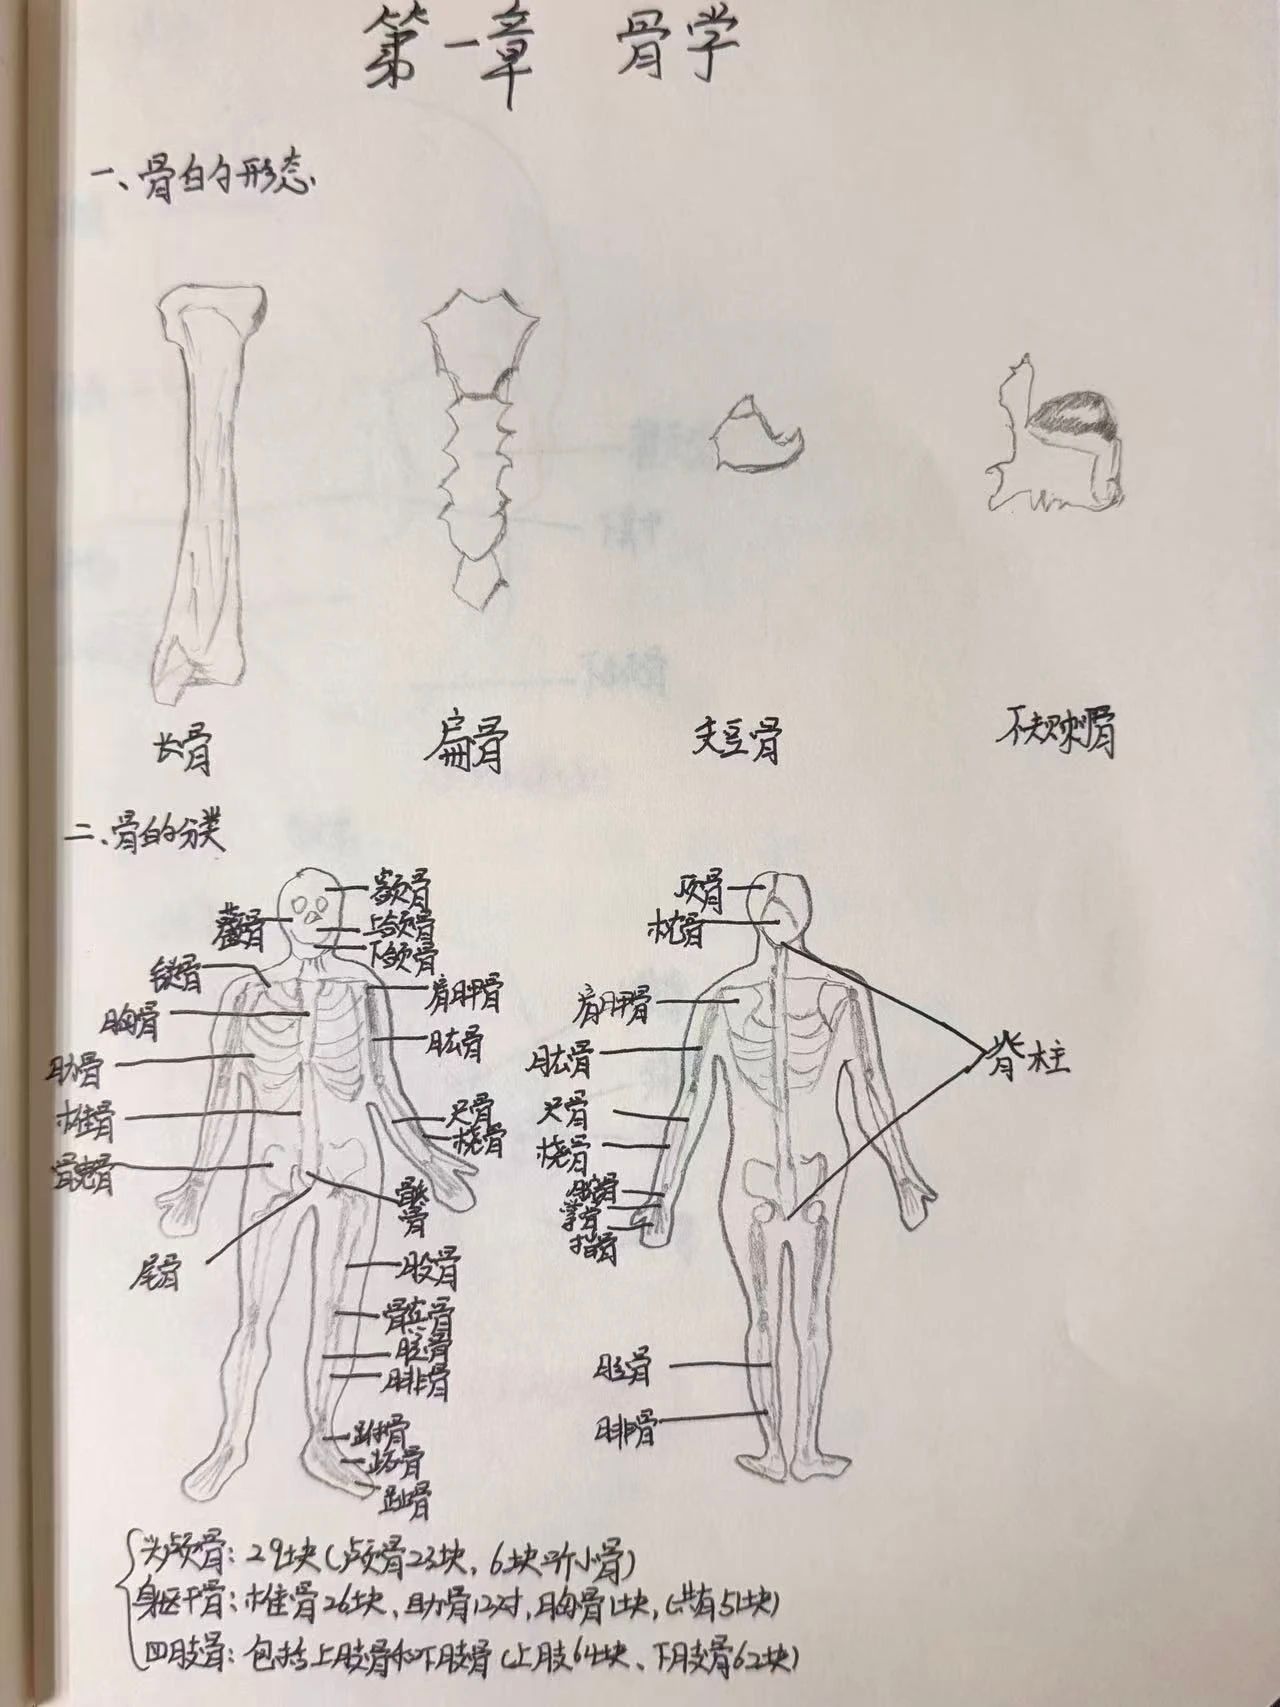 第一章 骨学
一、骨的形态
长骨
扁骨
短骨
不规则骨
二、骨的分类
额骨
颧骨
上颌骨
下颌骨
锁骨
胸骨
肋骨
椎骨
髋骨
尾骨
肩胛骨
肱骨
尺骨
桡骨
骶骨
股骨
髌骨
胫骨
腓骨
跗骨
跖骨
趾骨
顶骨
枕骨
肩胛骨
肱骨
尺骨
桡骨
腕骨
掌骨
指骨
脊柱
胫骨
腓骨
头颅骨：29块（颅骨23块，6块听小骨）
躯干骨：椎骨26块，肋骨12对，胸骨1块，（共有51块）
四肢骨：包括上肢骨和下肢骨（上肢64块、下肢骨62块）